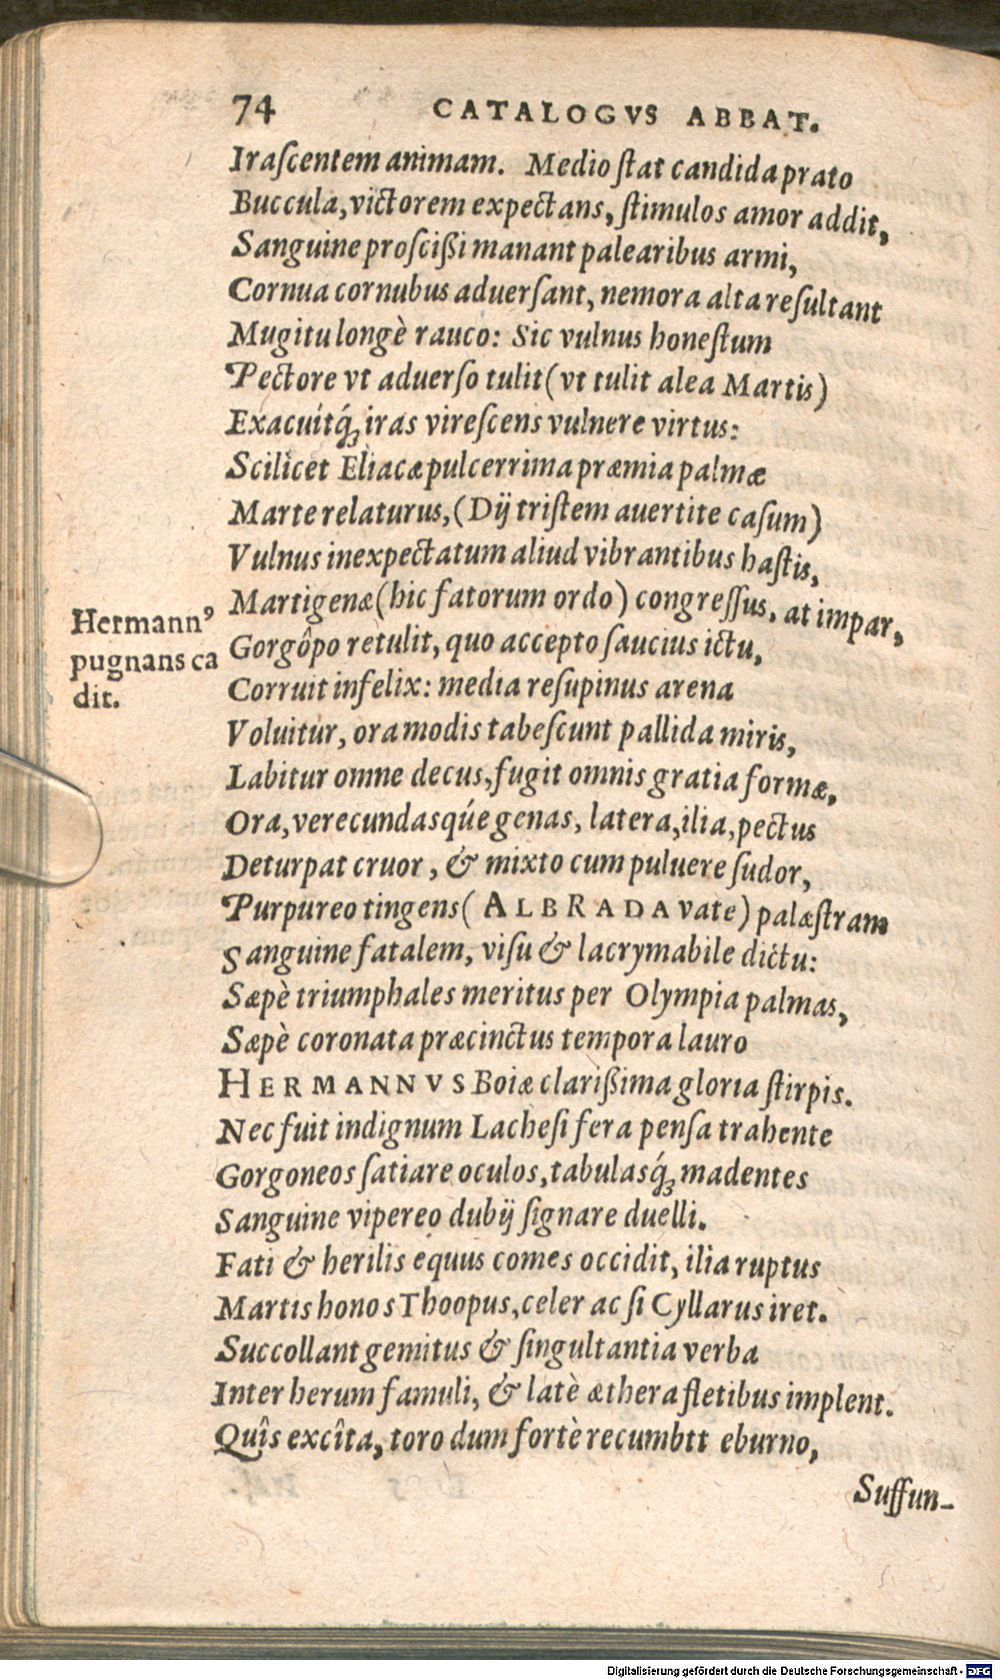 74 CATALOGVS ABBAT.
Iraſcentem animam. Medio ſtat candida prato
Buccula, victorem expectans, ſtimulos amor addit,
Sanguine proſciſſi manant palearibus armi,
Cornua cornubus aduerſant, nemora alta reſultant
Mugitu longè rauco: Sic vulnus honeſtum
Pectore vt aduerſo tulit (vt tulit alea Martis)
Exacuítq́ꝫ iras vireſcens vulnere virtus:
Scilicet Eliacæ pulcerrima præmia palmæ
Marte relaturus, (Dij triſtem auertite caſum)
Vulnus inexpectatum aliud vibrantibus haſtis,
Martigenæ (hic fatorum ordo) congreſſus, at impar,
Hermannꝰ
pugnans ca
dit.
Gorgôpo retulit, quo accepto ſaucius ictu,
Corruit infelix: media reſupinus arena
Voluitur, ora modis tabeſcunt pallida miris,
Labitur omne decus, fugit omnis gratia formæ,
Ora, verecundasqúe genas, latera, ilia, pectus
Deturpat cruor, & mixto cum puluere ſudor,
Purpureo tingens (ALBRADA vate) palæſtram
Sanguine fatalem, viſu & lacrymabile dictu:
Sæpè triumphales meritus per Olympia palmas,
Sæpè coronata præcinctus tempora lauro
HERMANNVS Boiæ clariſſima gloria ſtirpis.
Nec fuit indignum Lacheſi fera penſa trahente
Gorgoneos ſatiare oculos, tabulasq́ꝫ madentes
Sanguine vipereo dubij ſignare duelli.
Fati & herilis equus comes occidit, ilia ruptus
Martis honos Thoopus, celer ac ſi Cyllarus iret.
Succollant gemitus & ſingultantia verba
Inter herum famuli, & latè æthera fletibus implent.
Quîs excîta, toro dum fortè recumbtt eburno,
Suffun-
Digitalisierung gefördert durch die Deutsche Forschungsgemeinschaft - DFG